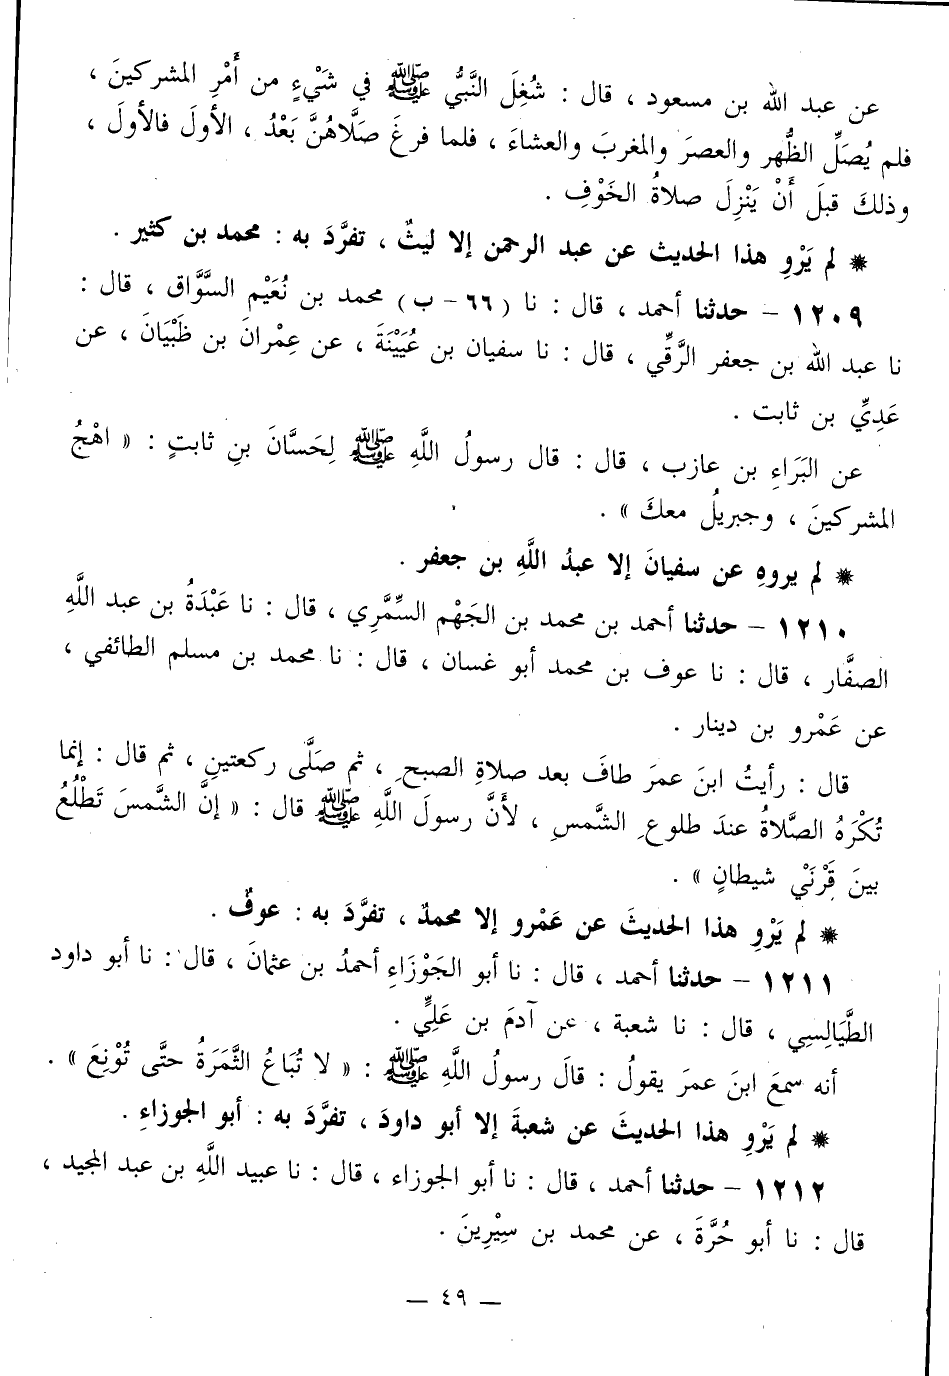 عن عبد الله بن مسعود ، قال : شُغِلَ النَّبيُّ ﷺ في شَيْءٍ من أَمْرِ المشركينَ ،
فلم يُصَلِّ الظُّهر والعصرَ والمغربَ والعشاءَ ، فلما فرغَ صَلَّاهُنَّ بَعْدُ ، الأولَ فالأولَ ،
وذلكَ قبلَ أَنْ يَنْزِلَ صلاةُ الخَوْفِ .
* لم يَرْوِ هذا الحديث عن عبد الرحمن إلا ليثٌ ، تفرَّدَ به : محمد بن كثير .
١٢٠٩ - حدثنا أحمد ، قال : نا ( ٦٦ - ب ) محمد بن نُعَيْم السَّوَّاق ، قال :
نا عبد الله بن جعفر الرَّقِّي ، قال : نا سفيان بن عُيَيْنَةَ ، عن عِمْرانَ بن ظَبْيَانَ ، عن
عَدِيِّ بن ثابت .
عن البَرَاءِ بن عازب ، قال : قال رسولُ اللَّهِ ﷺ لِحَسَّانَ بنِ ثابتٍ : « اهْجُ
المشركينَ ، وجبريلُ معكَ » .
* لم يروهِ عن سفيانَ إلا عبدُ اللَّهِ بن جعفر .
١٢١٠ - حدثنا أحمد بن محمد بن الجَهْم السِّمَّرِي ، قال : نا عَبْدَةُ بن عبد اللَّهِ
الصفَّار ، قال : نا عوف بن محمد أبو غسان ، قال : نا محمد بن مسلم الطائفي ،
عن عَمْرو بن دينار .
قال : رأيتُ ابنَ عمرَ طافَ بعد صلاةِ الصبحِ ، ثم صَلَّى ركعتينِ ، ثم قال : إنما
تُكْرَهُ الصَّلاةُ عندَ طلوعِ الشَّمسِ ، لأَنَّ رسولَ اللَّهِ ﷺ قال : « إنَّ الشَّمسَ تَطْلُعُ
بينَ قَرْنَيْ شيطانٍ » .
* لم يَرْوِ هذا الحديثَ عن عَمْرو إلا محمدٌ ، تفرَّدَ به : عوفٌ .
١٢١١ - حدثنا أحمد ، قال : نا أبو الجَوْزَاءِ أحمدُ بن عثمانَ ، قال : نا أبو داود
الطَّيَالِسِي ، قال : نا شعبة ، عن آدمَ بن عَلِيٍّ .
أنه سمعَ ابنَ عمرَ يقولُ : قالَ رسولُ اللَّهِ ﷺ : « لا تُبَاعُ الثَّمَرَةُ حتَّى تُوْنِعَ » .
* لم يَرْوِ هذا الحديثَ عن شعبةَ إلا أبو داودَ ، تفرَّدَ به : أبو الجوزاءِ .
١٢١٢ - حدثنا أحمد ، قال : نا أبو الجوزاء ، قال : نا عبيد اللَّهِ بن عبد المجيد ،
قال : نا أبو حُرَّةَ ، عن محمد بن سِيْرِينَ .
- ٤٩ -